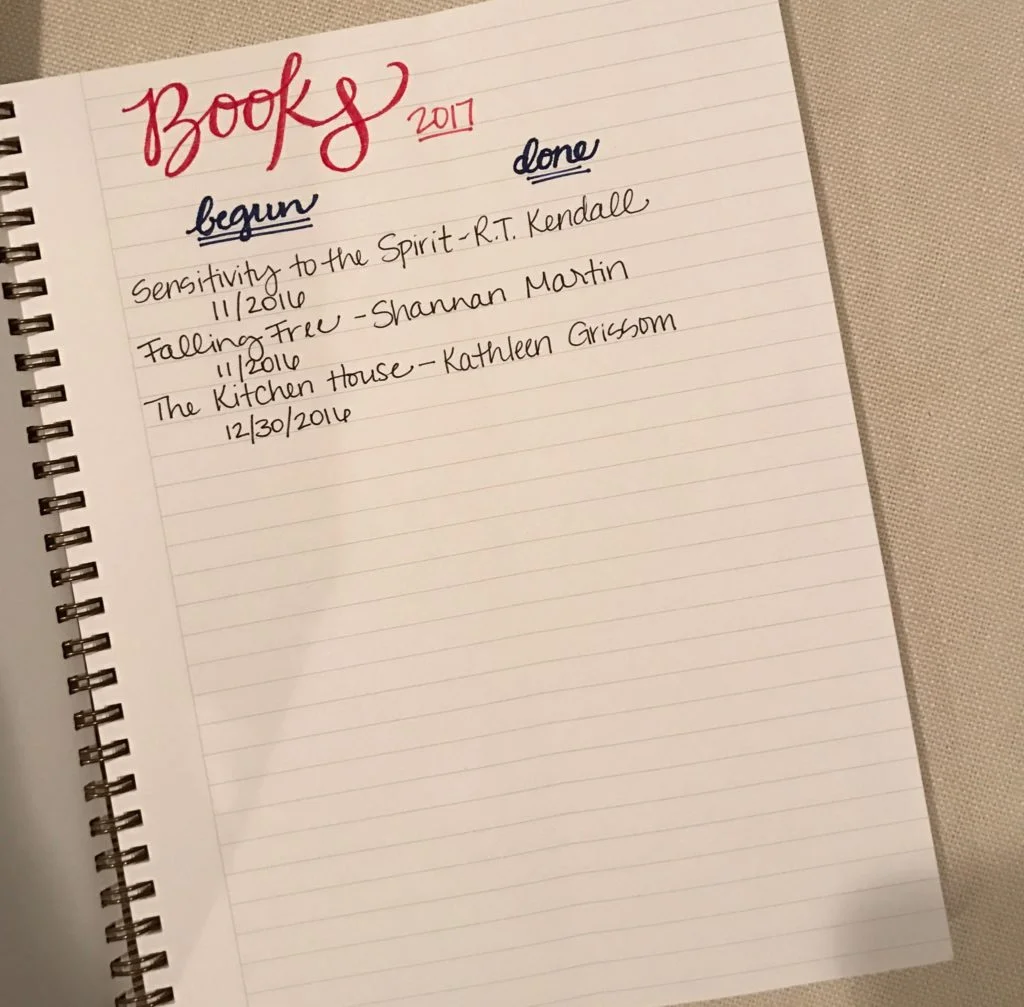 Books 2017
begun done
Sensitivity to the Spirit - R.T. Kendall
11/2016
Falling Free - Shannan Martin
11/2016
The Kitchen House - Kathleen Grissom
12/30/2016